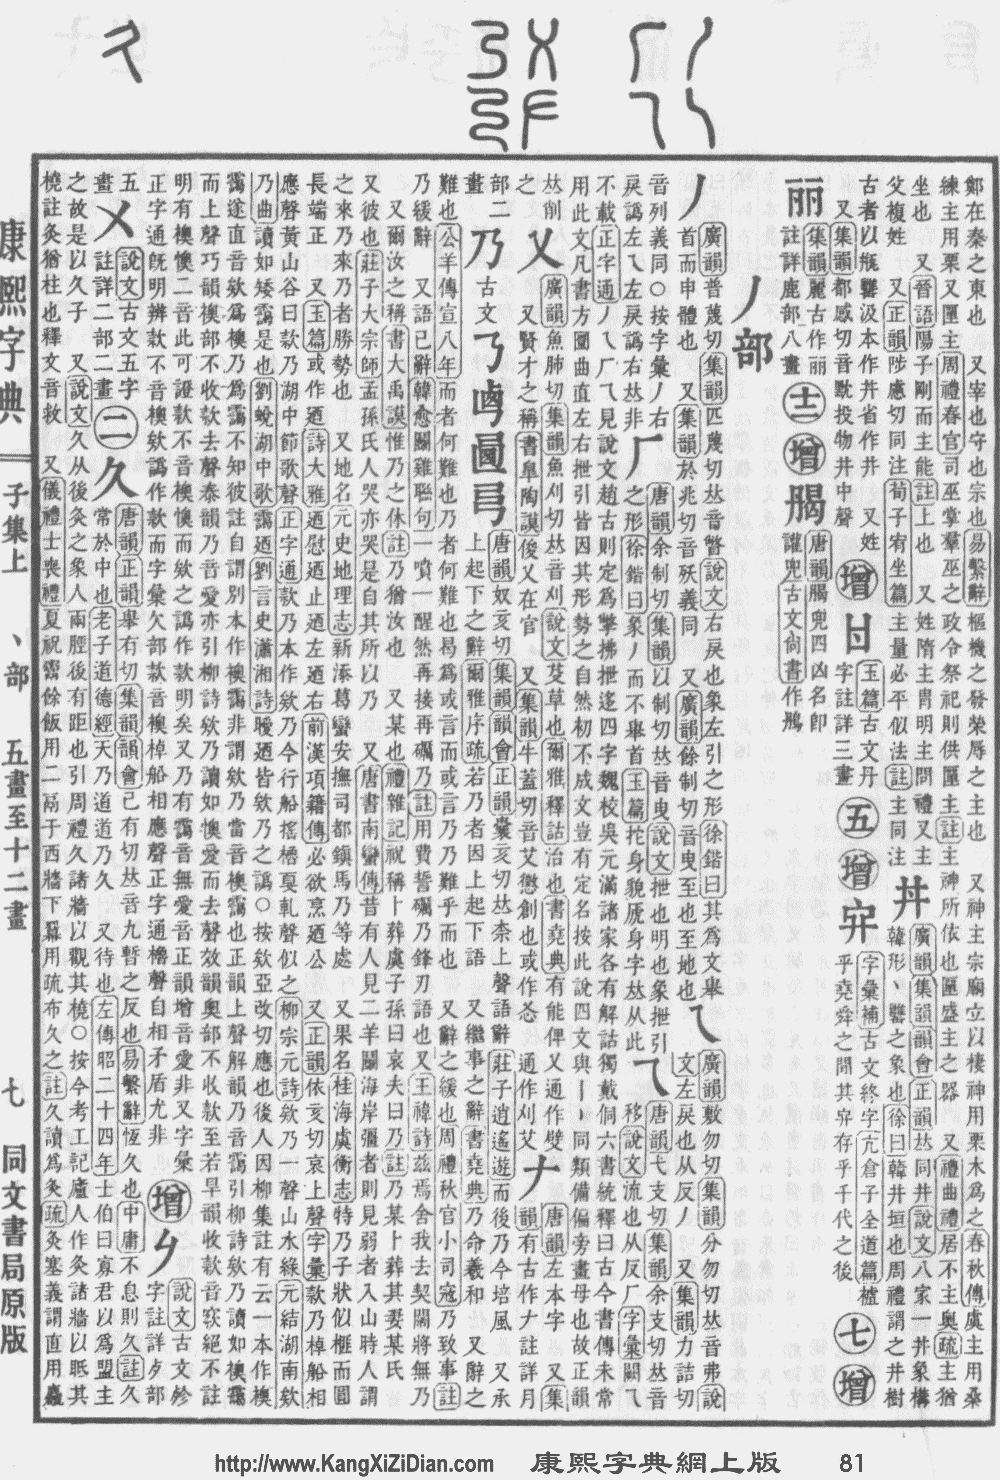 鄭在秦之東也 又宰也守也宗也易繫辭樞機之發榮辱之主也 又神主宗廟立以棲神用栗木爲之春秋傳虞主用桑
練主用栗又匰主周禮春官司巫掌羣巫之政令祭祀則供匰主註主神所依也匰盛主之器 又禮曲禮居不主奧疏主猶
坐也 又晉語陽子剛而主能註上也 又姓隋主胄明主問禮又主
父複姓 又正韻陟慮切同注荀子宥坐篇主量必平似法註主同注
丼
廣韻集韻韻會正韻𠀤同井說文八家一井象構
韓形丶䍌之象也徐曰韓井垣也周禮謂之井樹
古者以瓶䍌汲本作丼省作井 又姓
又集韻都感切音㽎投物井中聲
增
𠀍
玉篇古文丹
字註詳三畫
五
增
字彙補古文終字亢倉子全道篇櫨
乎堯舜之閒其𠔾存乎千代之後
七
增
丽
集韻麗古作丽
註詳鹿部八畫
十二
增
唐韻𩨭兜四凶名卽
讙兜古文尙書作鴅
丿部
丿
廣韻普蔑切集韻匹蔑切𠀤音瞥說文右戾也象左引之形徐鍇曰其爲文舉
首而申體也 又集韻於兆切音殀義同 又廣韻餘制切音曳至也至地也
乀
廣韻敷勿切集韻分勿切𠀤音弗說
文左戾也从反丿 又集韻力詰切
音列義同○按字彙丿右
戾譌左乀左戾譌右𠀤非
𠂆
唐韻余制切集韻以制切𠀤音曳說文抴也明也象抴引
之形徐鍇曰象丿而不舉首玉篇拕身貌虒身字𠀤从此
乁
唐韻弋支切集韻余支切𠀤音
移說文流也从反𠂆字彙闕丿
不載正字通丿乀𠂆乁見說文趙古則定爲擎拂抴迻四字魏校吳元滿諸家各有解詁獨戴侗六書統釋曰古今書傳未常
用此文凡書方圜曲直左右抴引皆因其形勢之自然初不成文豈有定名按此說四文與丨亅同類備偏旁畫母也故正韻
𠀤削
之
乂
廣韻魚肺切集韻魚刈切𠀤音刈說文芟草也爾雅釋詁治也書堯典有能俾乂通作壁
又賢才之稱書臯陶謨俊乂在官 又集韻牛蓋切音艾懲創也或作忞 通作刈艾
𠂇
唐韻左本字 又集
韻有古作𠂇註詳月
部二
畫
乃
古
文
𠄎𠧤圖弓
唐韻奴亥切集韻韻會正韻囊亥切𠀤柰上聲語辭莊子逍遙遊而後乃今培風 又承
上起下之辭爾雅序疏若乃者因上起下語 又繼事之辭書堯典乃命羲和 又辭之
難也公羊傳宣八年而者何難也乃者何難也曷爲或言而或言乃乃難乎而也 又辭之緩也周禮秋官小司寇乃致事註
乃緩辭 又語已辭韓愈鬭雞聯句一噴一醒然再接再礪乃註用費誓礪乃鋒刃語也又王禕詩茲焉舍我去契闊將無乃
又爾汝之稱書大禹謨惟乃之休註乃猶汝也 又某也禮雜記祝稱卜葬虞子孫曰哀夫曰乃註乃某卜葬其妻某氏
又彼也莊子大宗師孟孫氏人哭亦哭是自其所以乃 又唐書南蠻傳昔有人見二羊鬭海岸彊者則見弱者入山時人謂
之來乃來乃者勝勢也 又地名元史地理志新添葛蠻安撫司都鎭馬乃等處 又果名桂海虞衡志特乃子狀似榧而圓
長端正 又玉篇或作廼詩大雅廼慰廼止廼左廼右前漢項籍傳必欲烹廼公 又正韻依亥切哀上聲字彙欸乃棹船相
應聲黃山谷曰欸乃湖中節歌聲正字通欸乃本作欸乃今行船搖櫓戛軋聲似之柳宗元詩欸乃聲山水綠元結湖南欸
乃曲讀如矮靄是也劉蛻湖中歌靄廼劉言史瀟湘詩曖廼皆欸乃之譌○按欸亞改切應也後人因柳集註有云一本作襖
靄遂直音欸爲襖乃爲靄不知彼註自謂別本作襖靄非謂欸乃當音襖靄也正韻上聲解韻乃音靄引柳詩欸乃讀如襖靄
而上聲巧韻襖部不收欸去聲泰韻乃音愛亦引柳詩欸乃讀如懊愛而去聲效韻奧部不收款至若旱韻收款音窾絕不註
明有襖懊二音此可證款不音襖懊而欸之譌作款明矣又乃有靄音無愛音正韻增音愛非又字彙
正字通旣明辨款不音襖欸譌作款而字彙欠部款音襖棹船相應聲正字通櫓聲自相矛盾尤非
增
字註詳㐱部
說文古文㐱
五
畫
㐅
說文古文五字
註詳二部二畫
二
久
唐韻正韻舉有切集韻韻會己有切𠀤音九暫之反也易繫辭恆久也中庸不息則久註久
常於中也老子道德經天乃道道乃久 又待也左傳昭二十四年士伯曰寡君以爲盟主
之故是以久子 又說文久从後灸之象人兩脛後有距也引周禮久諸牆以觀其橈○按今考工記廬人作灸諸牆以眡其
橈註灸猶柱也釋文音救 又儀禮士喪禮夏祝鬻餘飯用二鬲于西牆下冪用疏布久之註久讀爲灸疏灸塞義謂直用麤
康熙字典
子集上
丶部
五畫至十二畫
七
同文書局原版
http://www.KangXiZiDian.com
康熙字典網上版
81